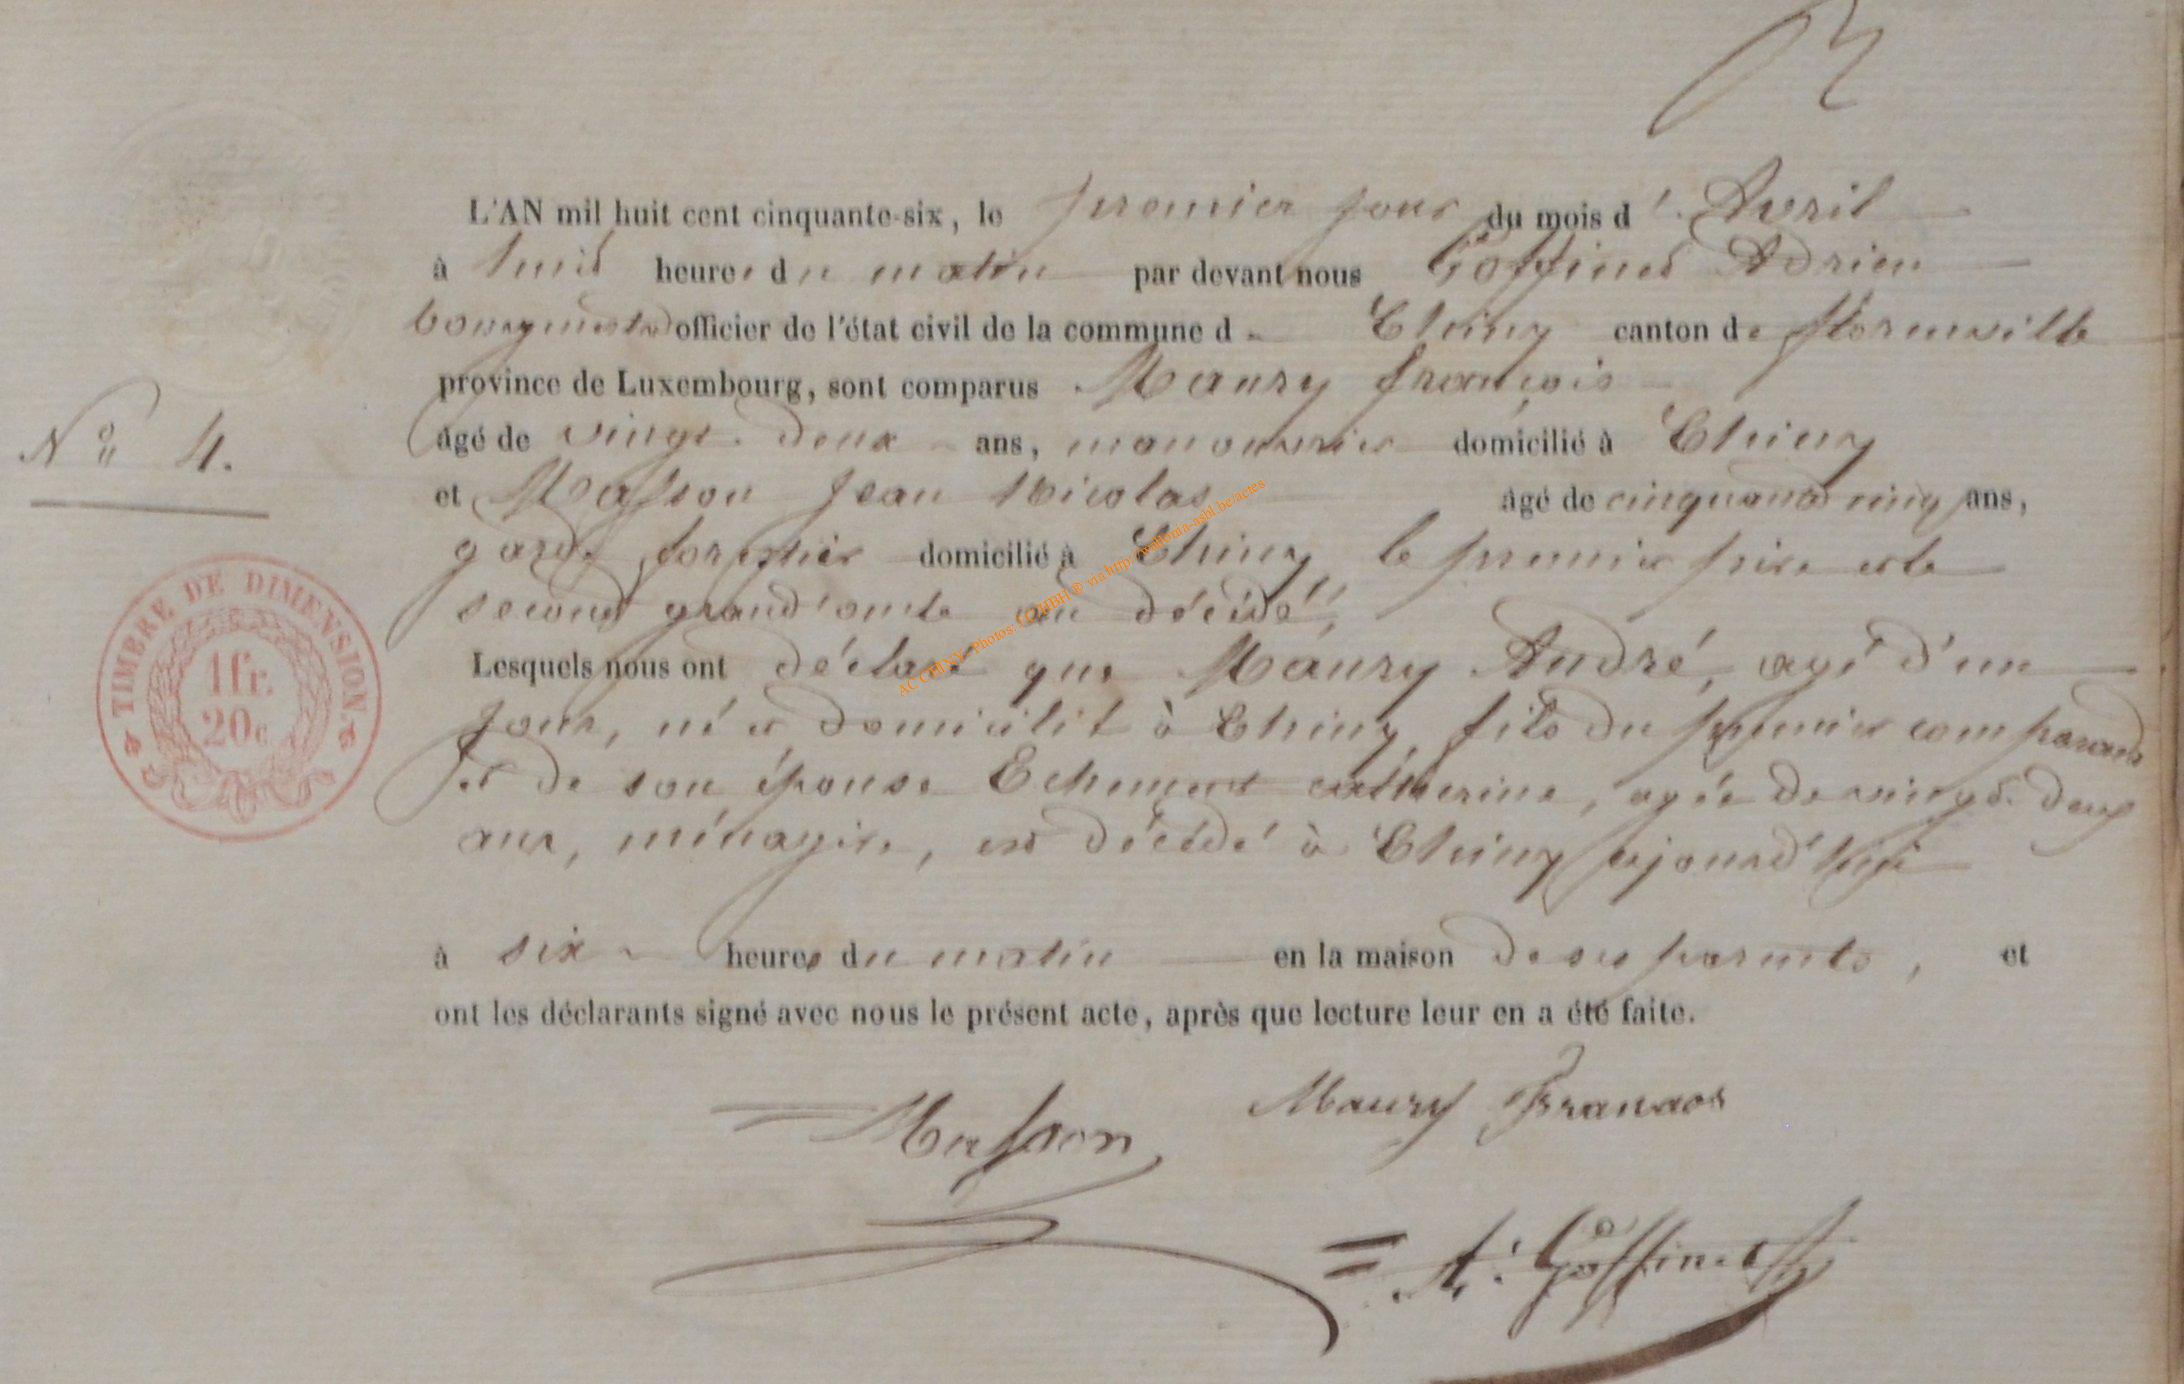 L'AN mil huit cent cinquante-six, le premier jour du mois d'Avril
à huit heures du matin par devant nous Goffinet Adrien
bourgmestre officier de l'état civil de la commune de Chiny canton de florenville
province de Luxembourg, sont comparus Maury françois
N° 4.
âgé de vingt-deux ans, manouvrier domicilié à Chiny
et Masson Jean Nicolas âgé de cinquante cinq ans,
garde forestier domicilié à Chiny, le premier père et le
second grand'oncle au décédé,
TIMBRE DE DIMENSION
1 fr.
20c
Lesquels nous ont déclaré que Maury André, agé d'un
jour, né et domicilié à Chiny, fils du premier comparant
et de son épouse catherine, agée de vingt-deux
ans, ménagère, est décédé à Chiny ajourd'hui
à six heures du matin en la maison de ses parents, et
ont les déclarants signé avec nous le présent acte, après que lecture leur en a été faite.
Masson Maury
A. Goffinet
AC CHINY - Photos: via http://wallonia-asbl.be/actes